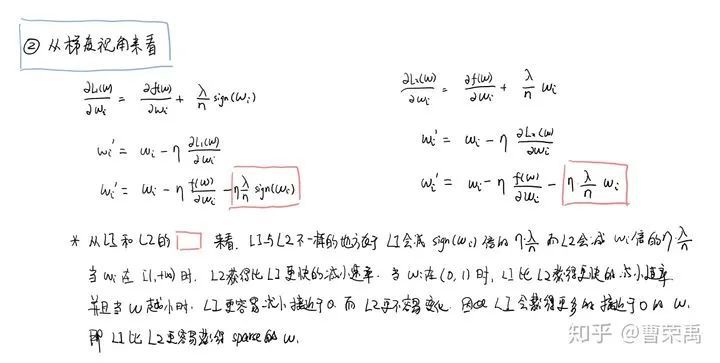 ② 从梯度视角来看
∂L₁(w)/∂wᵢ = ∂f(w)/∂wᵢ + λ/n sign(wᵢ)
wᵢ' = wᵢ - η ∂L₁(w)/∂wᵢ
wᵢ' = wᵢ - η f(w)/∂wᵢ - η λ/n sign(wᵢ)
∂L₂(w)/∂wᵢ = ∂f(w)/∂wᵢ + λ/n wᵢ
wᵢ' = wᵢ - η ∂L₂(w)/∂wᵢ
wᵢ' = wᵢ - η f(w)/∂wᵢ - η · λ/n wᵢ
* 从 L1 和 L2 的 来看, L1 与 L2 不一样的地方在于 L1 会减 sign(wᵢ) 倍的 η·λ/n 而 L2 会减 wᵢ 倍的 η·λ/n
当 wᵢ 在 (1,+∞) 时, L2 获得比 L1 更快的减小速率. 当 wᵢ 在 (0,1) 时, L1 比 L2 获得更快的减小速率
并且当 w 越小时, L1 更容易减小接近于0. 而 L2 更不容易变化. 因此 L1 会获得更多的接近于0的 w.
即 L1 比 L2 更容易获得 sparse 的 w.
知乎 @曹荣禹